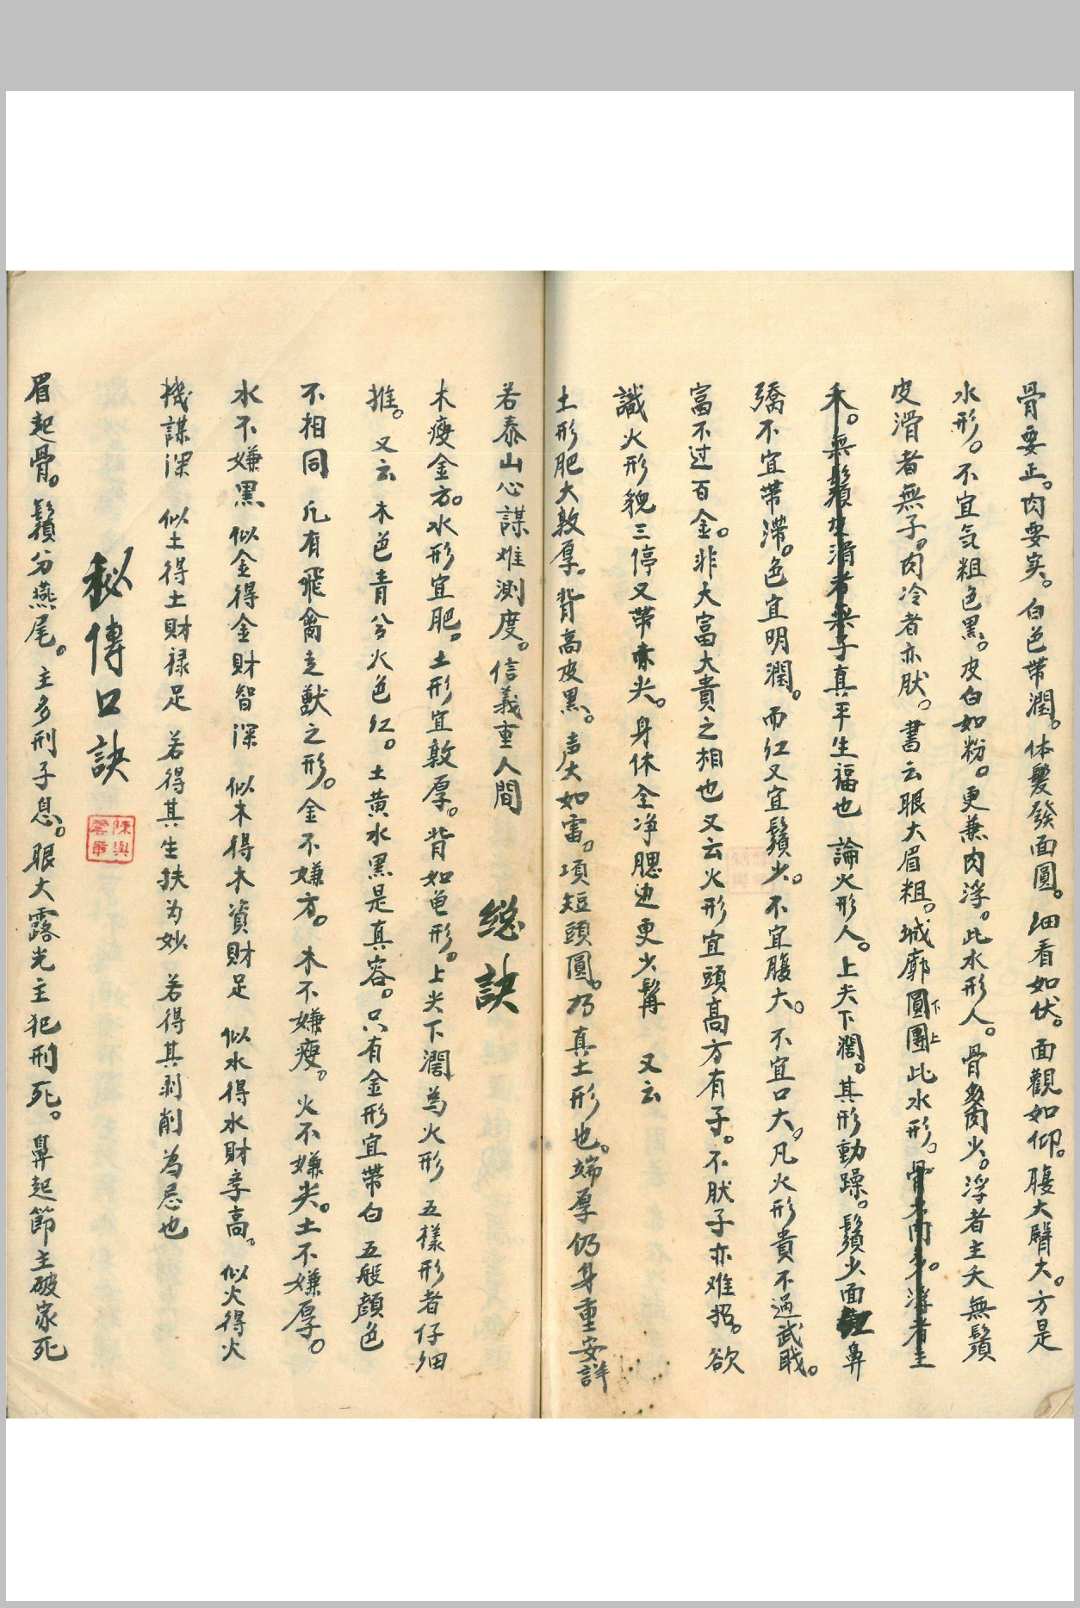 骨要正。肉要实。白色带潤。体髮發面圓。细看如伏。面觀如仰。腹大臂大。方是
水形。不宜気粗色黑。皮白如粉。更兼肉浮。此水形人。骨肉少。浮者主夭無鬚
皮滑者無子。肉冷者亦肰。書云眼大眉粗。城廓圓團下上此水形。骨大肉多。浮者主
夭。無鬚皮滑者無子真平生福也 論火形人。上尖下濶。其形動躁。鬚少面紅鼻
矯不宜带滯。色宜明潤。而红又宜鬚少。不宜腹大。不宜口大。凡火形貴不過武戝。
富不过百金。非大富大貴之相也又云火形宜頭高方有子。不肰子亦难招。欲
識火形貌三停又带尖。身体全净腮边更少髯 又云
土形肥大敦厚。背高皮黑。声大如雷。項短頭圓。乃真土形也。端厚仍身重安詳
若泰山心謀难測度。信義重人間 総訣
木瘦金方。水形宜肥。土形宜敦厚。背如龟形。上尖下濶為火形 五樣形者仔细
推。又云 木色青兮火色红。土黄水黑是真容。只有金形宜带白 五般顔色
不相同 凡有飛禽走獸之形。金不嫌方。木不嫌瘦。火不嫌尖。土不嫌厚。
水不嫌黑 似金得金財智深 似木得木資財足 似水得水財李高。似火得火
機謀深 似土得土財禄足 若得其生扶为妙 若得其剥削為忌也
秘傳口訣
眉起骨。鬚分燕尾。主多刑子息。眼大露光主犯刑死。鼻起節主破家死